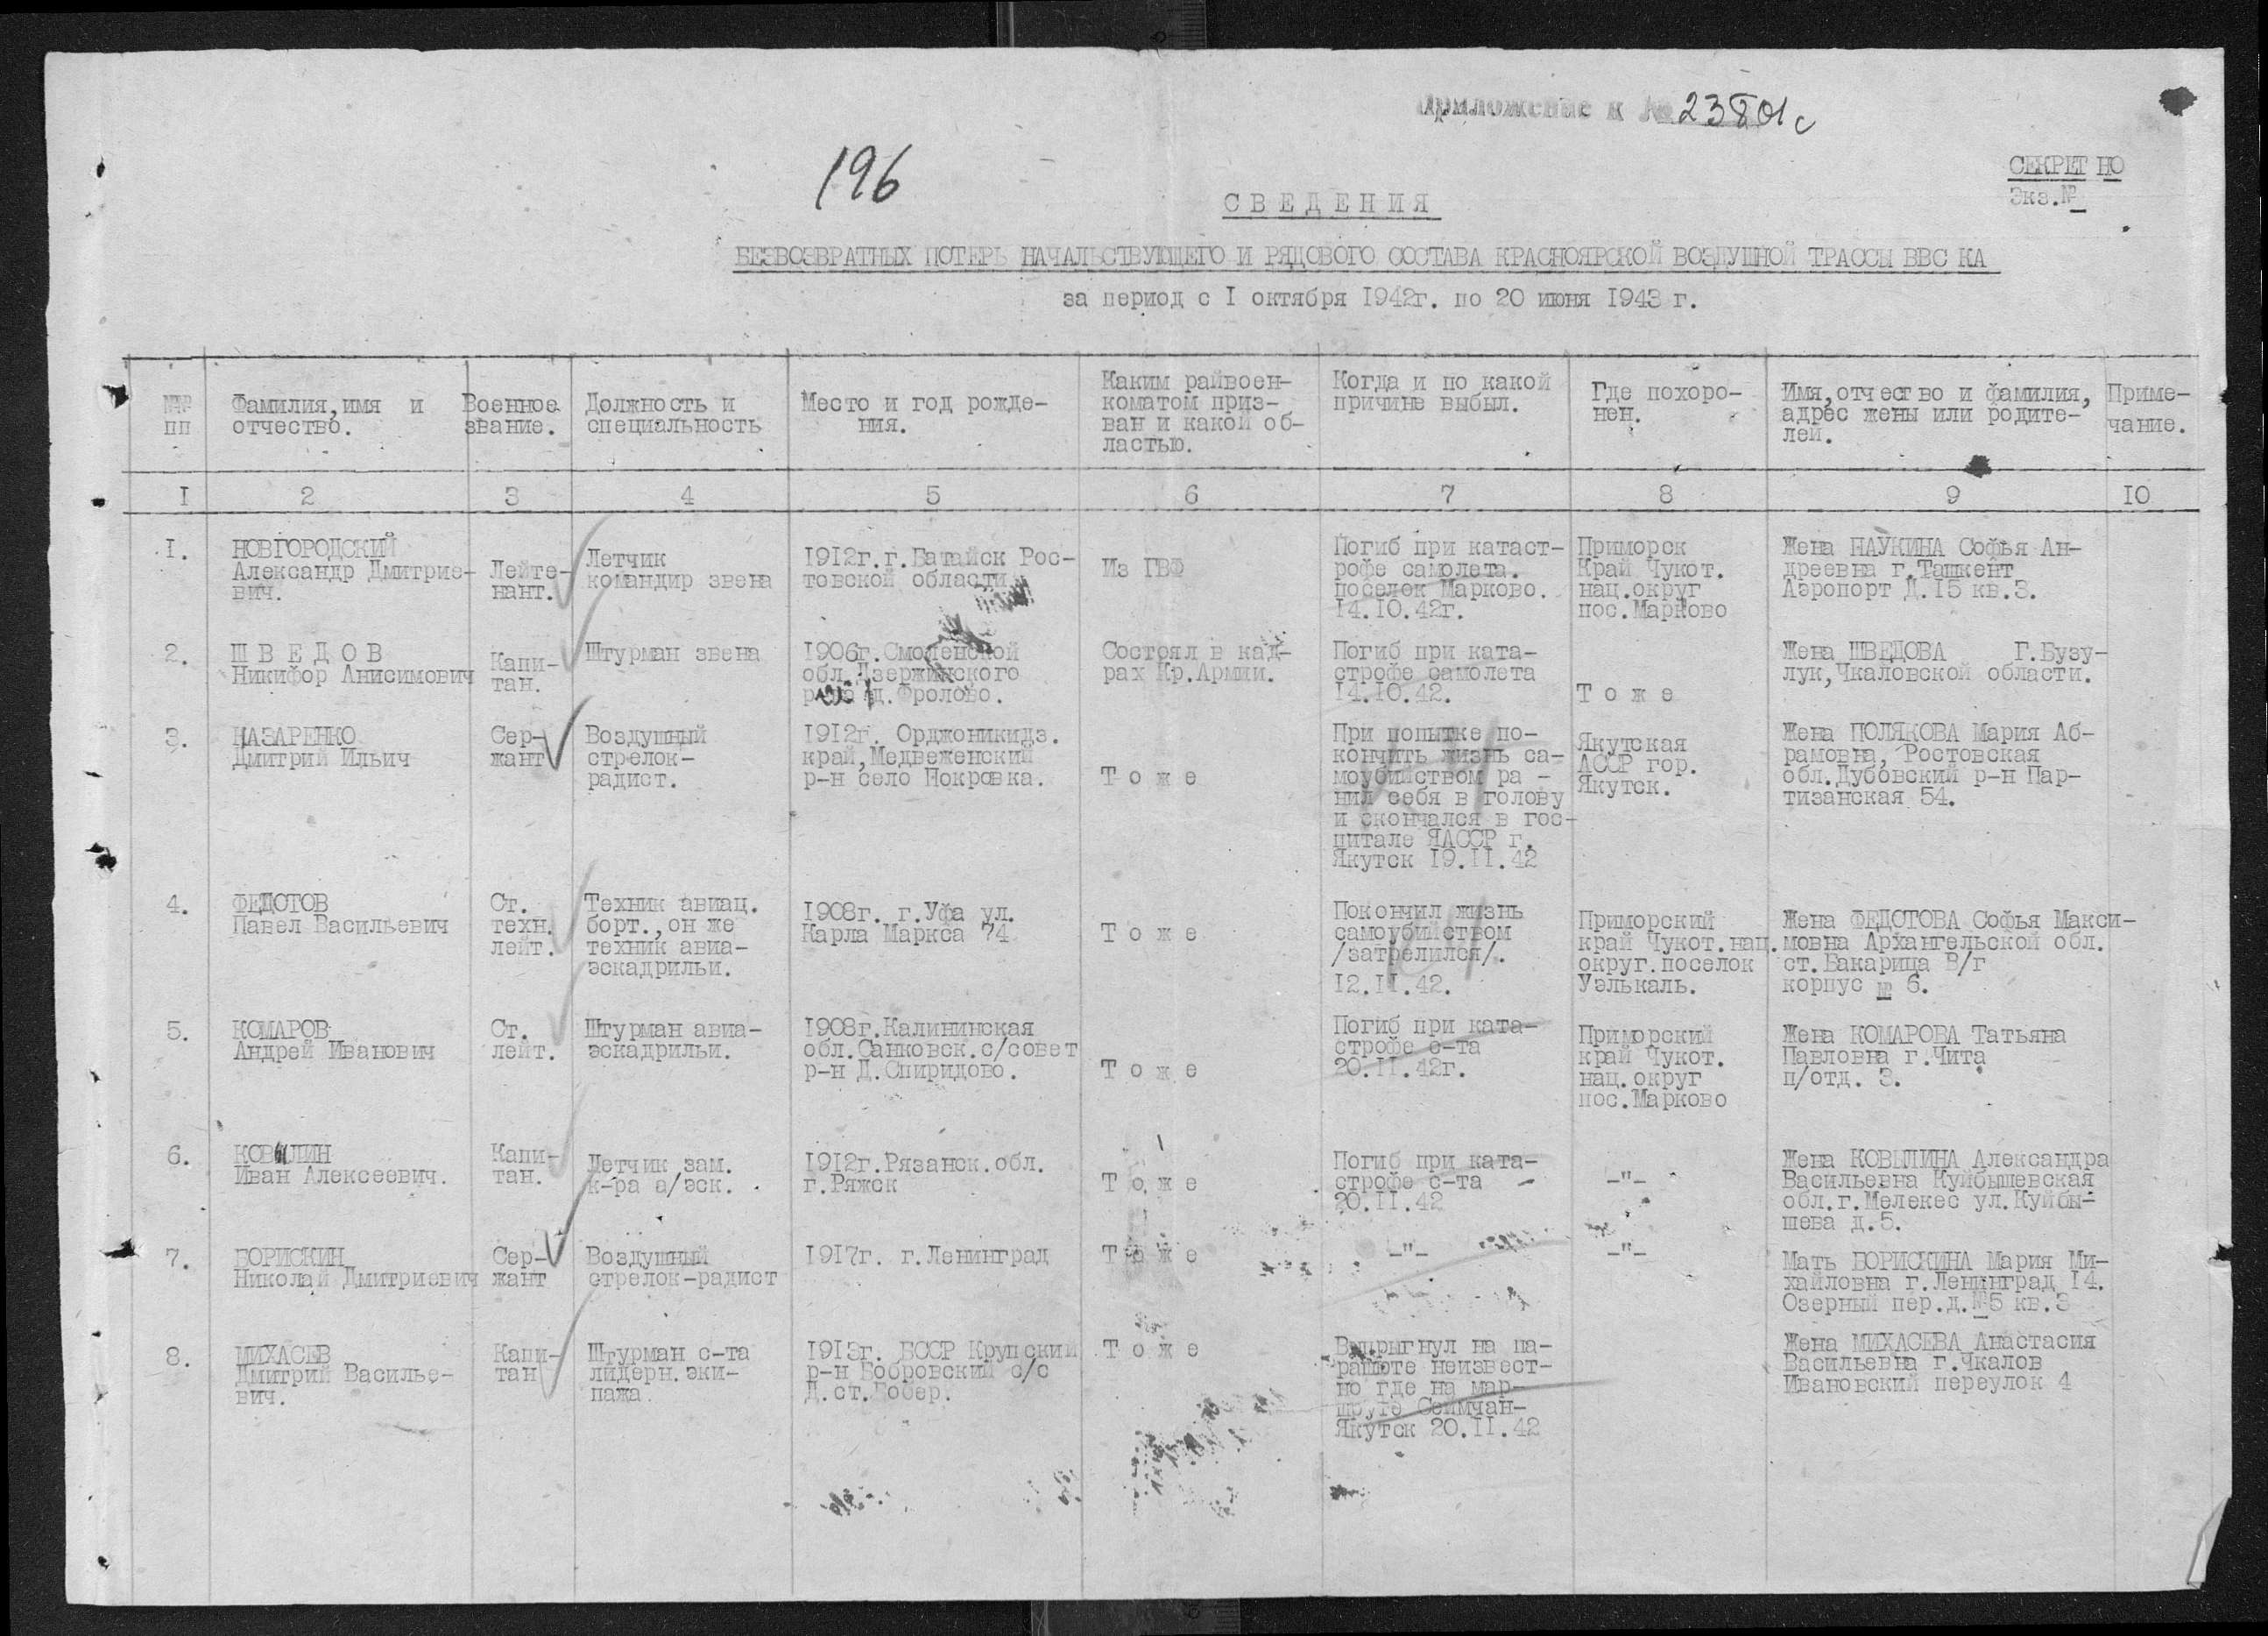 Приложение к № 23801с
196
СЕКРЕТНО
Экз.№
СВЕДЕНИЯ
БЕЗВОЗВРАТНЫХ ПОТЕРЬ НАЧАЛЬСТВУЮЩЕГО И РЯДОВОГО СОСТАВА КРАСНОЯРСКОЙ ВОЗДУШНОЙ ТРАССЫ ВВС КА
за период с 1 октября 1942г. по 20 июня 1943 г.
№№
пп
Фамилия,имя и
отчество.
Военное
звание.
Должность и
специальность
Место и год рожде-
ния.
Каким райвоен-
коматом приз-
ван и какой об-
ластью.
Когда и по какой
причине выбыл.
Где похоро-
нен.
Имя,отчество и фамилия,
адрес жены или родите-
лей.
Приме-
чание.
1 2 3 4 5 6 7 8 9 10
1.
НОВГОРОДСКИЙ
Александр Дмитрие-
вич.
Лейте-
нант.
Летчик
командир звена
1912г.г.Батайск Рос-
товской области.
Из ГВФ
Погиб при катаст-
рофе самолета.
поселок Марково.
14.10.42г.
Приморск
Край Чукот.
нац.округ
пос.Марково
Жена ПАУКИНА Софья Ан-
дреевна г.Ташкент
Аэропорт Д.15 кв.3.
2.
ШВЕДОВ
Никифор Анисимович
Капи-
тан.
Штурман звена
1906г.Смоленской
обл.Дзержинского
р-на д.Фролово.
Состоял в кад-
рах Кр.Армии.
Погиб при ката-
строфе самолета
14.10.42.
Тоже
Жена ШВЕДОВА Г.Бузу-
лук,Чкаловской области.
3.
НАЗАРЕНКО
Дмитрий Ильич
Сер-
жант
Воздушный
стрелок-
радист.
1912г. Орджоникидз.
край,Медвеженский
р-н село Покровка.
Тоже
При попытке по-
кончить жизнь са-
моубийством ра -
нил себя в голову
и скончался в гос-
питале ЯАССР г.
Якутск 19.11.42
Якутская
АССР гор.
Якутск.
Жена ПОЛЯКОВА Мария Аб-
рамовна, Ростовская
обл.Дубовский р-н Пар-
тизанская 54.
4.
ФЕДОТОВ
Павел Васильевич
Ст.
техн.
лейт.
Техник авиац.
борт.,он же
техник авиа-
эскадрильи.
1908г. г.Уфа ул.
Карла Маркса 74
Тоже
Покончил жизнь
самоубийством
/затрелился/.
12.11.42.
Приморский
край Чукот.нац.
округ.поселок
Уэлькаль.
Жена ФЕДОТОВА Софья Макси-
мовна Архангельской обл.
ст.Бакарица В/г
корпус № 6.
5.
КОМАРОВ
Андрей Иванович
Ст.
лейт.
Штурман авиа-
эскадрильи.
1908г.Калининская
обл.Санковск.с/совет
р-н Д.Спиридово.
Тоже
Погиб при ката-
строфе с-та
20.11.42г.
Приморский
край Чукот.
нац.округ
пос.Марково
Жена КОМАРОВА Татьяна
Павловна г.Чита
п/отд. 3.
6.
КОВЫЛИН
Иван Алексеевич.
Капи-
тан.
Летчик зам.
к-ра а/эск.
1912г.Рязанск.обл.
г.Ряжск
Тоже
Погиб при ката-
строфе с-та
20.11.42
-"-
Жена КОВЫЛИНА Александра
Васильевна Куйбышевская
обл.г.Мелекес ул.Куйбы-
шева д.5.
7.
БОРИСКИН
Николай Дмитриевич
Сер-
жант
Воздушный
стрелок-радист
1917г. г.Ленинград
Тоже
-"-
-"-
Мать БОРИСКИНА Мария Ми-
хайловна г.Ленинград 14.
Озерный пер.д.№5 кв.3
8.
МИХАСЕВ
Дмитрий Василье-
вич.
Капи-
тан
Штурман с-та
лидерн.эки-
пажа.
1913г. БССР Крупский
р-н Бобровский с/с
Д.ст.Бобер.
Тоже
Выпрыгнул на па-
рашюте неизвест-
но где на мар-
шруте Сеймчан-
Якутск 20.11.42
Жена МИХАСЕВА Анастасия
Васильевна г.Чкалов
Ивановский переулок 4